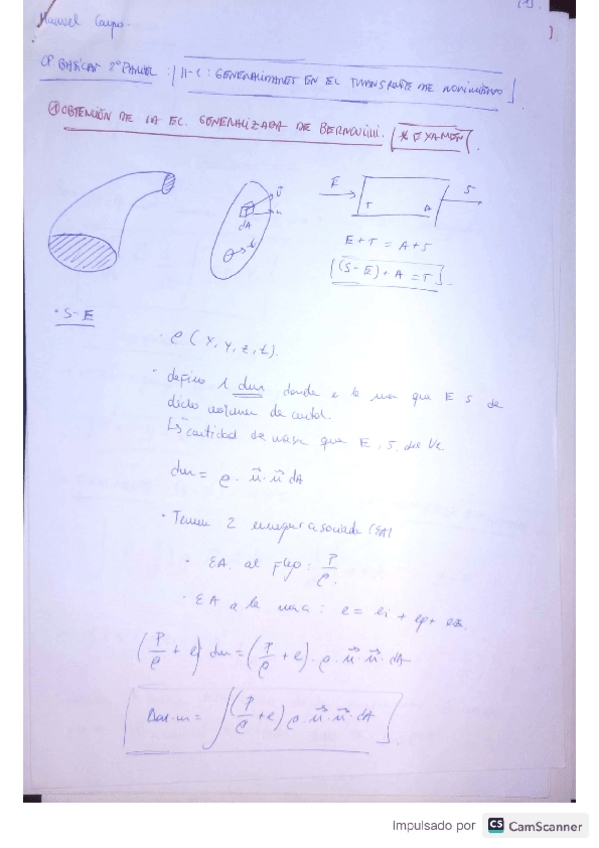 Manuel Campo.
OP. BÁSICAS 2º PARCIAL: 11-C: GENERALIDADES EN EL TRANSPORTE DE MOVIMIENTO
① OBTENCIÓN DE LA EC. GENERALIZADA DE BERNOUILLI. * EXAMEN
E S
T A
dA
E + T = A + S
(S-E) + A = T
· S-E
· ρ (x, y, z, t).
· defino 1 dm donde e la masa que E S de
dicho volumen de control.
↳ cantidad de masa que E, S, del Vc
dm = ρ · u · n dA
· Tienen 2 energías asociadas (EA)
· EA. al flujo: P/ρ.
· EA a la masa: e = ei + ep + ec.
(P/ρ + e) dm = (P/ρ + e) · ρ · u · n · dA
= ∫ (P/ρ + e) ρ · u · n · dA
Impulsado por CS CamScanner